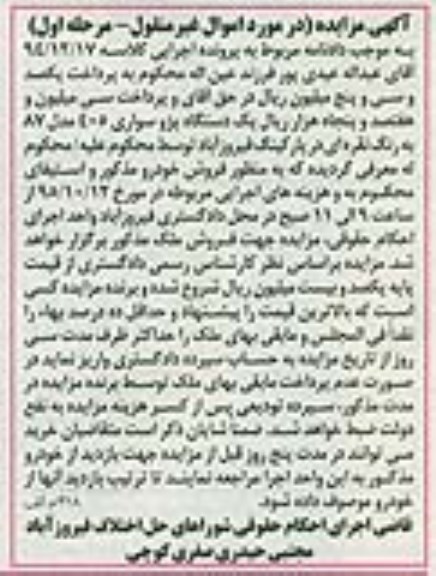 آگهی مزایده (در مورد اموال غیر منقول - مرحله اول)
به موجب دادنامه مربوط به پرونده اجرایی کلاسه ۹۴/۱۲/۱۷
آقای عبداله عبدی پور فرزند عین اله محکوم به پرداخت یکصد
و سی و پنج میلیون ریال در حق آقای و پرداخت سی میلیون و
هفتصد و پنجاه هزار ریال یک دستگاه پژو سواری ۴۰۵ مدل ۸۷
به رنگ نقره ای در پارکینگ فیروزآباد توسط محکوم علیه / محکوم
له معرفی گردیده که به منظور فروش خودرو مذکور و استیفای
محکوم به و هزینه های اجرایی مربوطه در مورخ ۹۵/۱۰/۱۲ از
ساعت ۹ الی ۱۱ صبح در محل دادگستری فیروزآباد واحد اجرای
احکام حقوقی، مزایده جهت فروش ملک مذکور برگزار خواهد
شد. مزایده براساس نظر کارشناسی رسمی دادگستری از قیمت
پایه یکصد و بیست میلیون ریال شروع شده و برنده مزایده کسی
است که بالاترین قیمت را پیشنهاد و حداقل ده درصد بها، را
نقداً فی المجلس و مابقی بهای ملک را حداکثر ظرف مدت سی
روز از تاریخ مزایده به حساب سپرده دادگستری واریز نماید در
صورت عدم پرداخت مابقی بهای ملک توسط برنده مزایده در
مدت مذکور، سپرده تودیعی پس از کسر هزینه مزایده به نفع
دولت ضبط خواهد شد. ضمنا شایان ذکر است متقاضیان خرید
می توانند در مدت پنج روز قبل از مزایده جهت بازدید از خودرو
مذکور به این واحد اجرا مراجعه نمایند تا ترتیب بازدید آنها از
خودرو موصوف داده شود.
قاضی اجرای احکام حقوقی شوراهای حل اختلاف فیروزآباد
مجتبی حیدری صفری کوچی